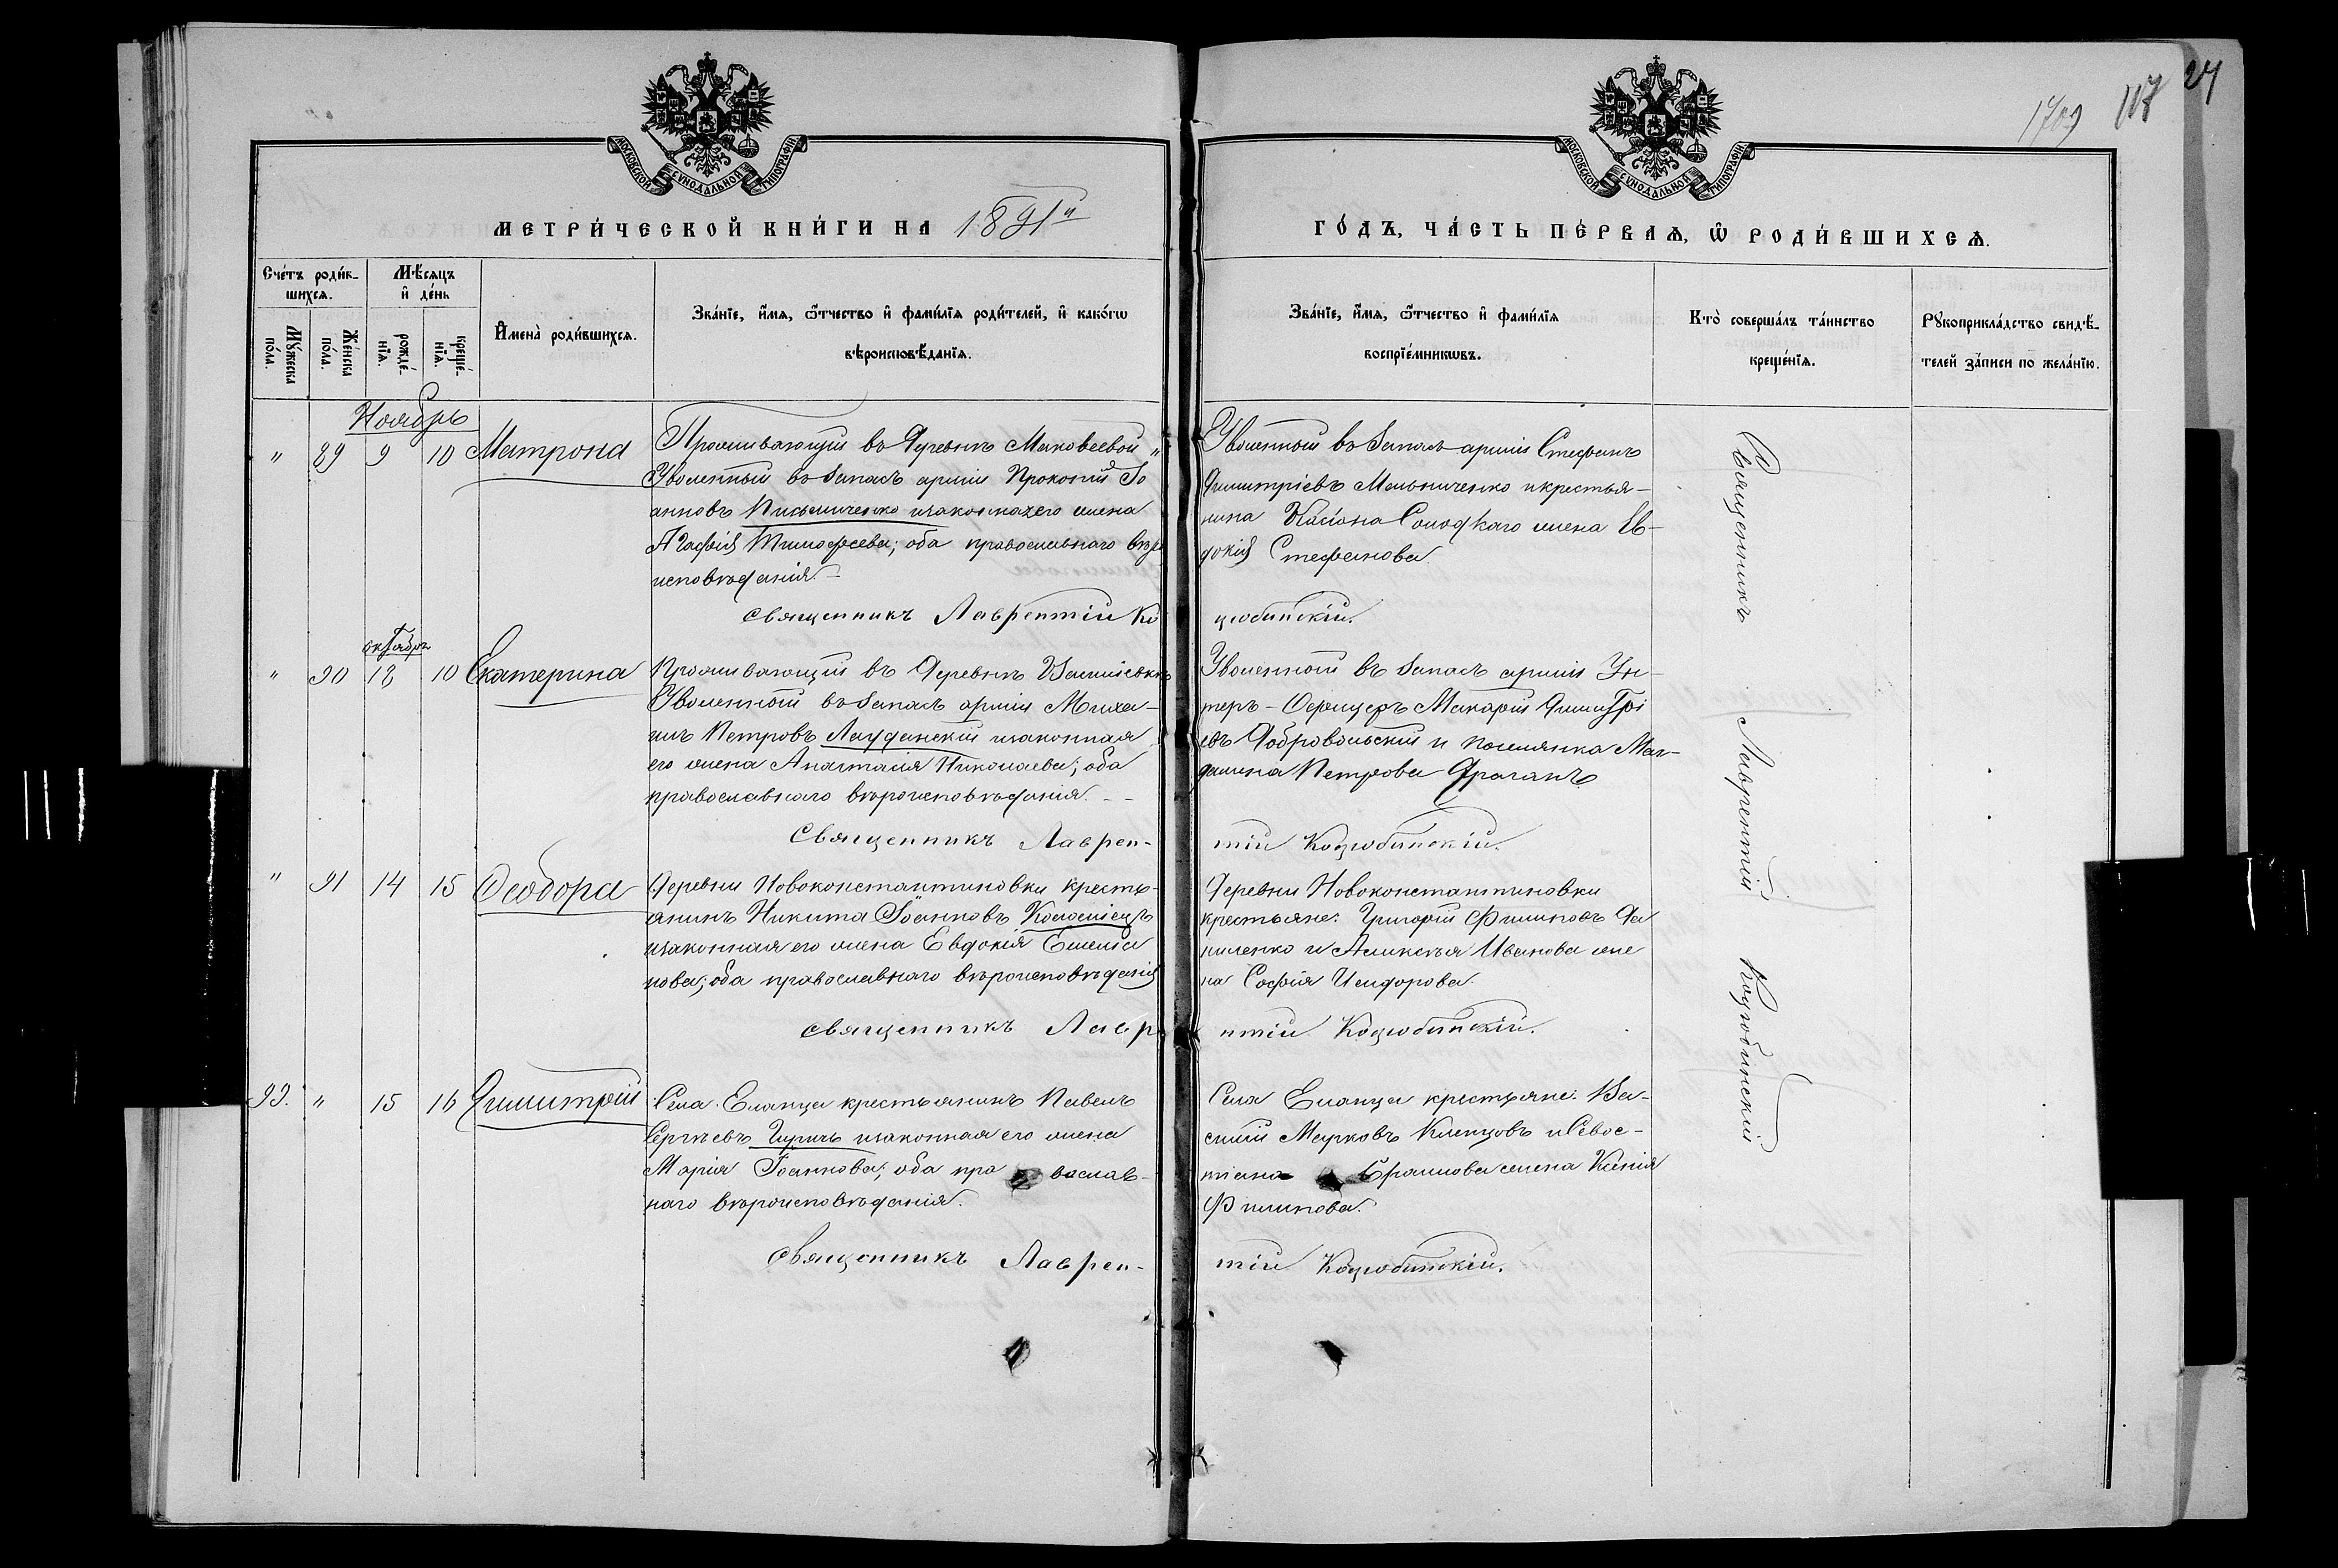 1709 117 24
МОСКОВСКОЙ СѴНОДАЛЬНОЙ ТИПОГРАФІИ
МОСКОВСКОЙ СѴНОДАЛЬНОЙ ТИПОГРАФІИ
МЕТРИ́ЧЕСКОЙ КНИ́ГИ НА 1891й
ГО́ДЪ, ЧА́СТЬ ПЕ́РВАѦ, Ѽ РОДИ́ВШИХСѦ.
Сче́тъ роди́в-
шихсѧ.
Мꙋ́жеска по́ла.
Же́нска по́ла.
Мѣ́сяцъ
и҆ де́нь
рожде́-
нїѧ.
креще́-
нїѧ.
И҆мена̀ роди́вшихсѧ.
Зва́нїе, и҆́мѧ, ѻ҆́тчество и҆ фами́лїѧ роди́телей, и҆ како́гѡ
вѣроисповѣ́данїѧ.
Зва́нїе, и҆́мѧ, ѻ҆́тчество и҆ фами́лїѧ
воспрїе́мникѡвъ.
Кто̀ соверша́лъ та́инство
креще́нїѧ.
Рꙋкоприкла́дство свидѣ́-
телей за́писи по жела́нїю.
Ноябрь
" 89 9 10 Матрона
Проживающій въ Деревнѣ Маковеевой
Уволенный въ запасъ арміи Прокопій Іо
анновъ Письмиченко изаконная его жена
Агафія Тимофеева; оба православнаго вѣро
исповѣданія.
Священникъ Лаврентій Ко
Уволенный въ запасъ арміи Стефанъ
Димитріевъ Мельниченко и крестья-
нина Касіона Солодкаго жена Ев-
докія Стефанова
цюбинскій.
октябрь
" 90 18 10 Екатерина
Проживающій въ Деревнѣ Василіевкѣ
Уволенный въ запасъ арміи Миха-
илъ Петровъ Лауданскій изаконная
его жена Анастасія Николаева; оба
православнаго вѣроисповѣданія. - -
Священникъ Лаврен-
Уволенный въ запасъ арміи Ун-
теръ-Офицеръ Макарій Димитрі
евъ Добровольскій и поселянка Маг-
далина Петрова Драганъ
тій Коцюбинскій.
" 91 14 15 Ѳеодора
Деревни Новоконстантиновки кресть-
янинъ Никита Іоанновъ Коломіецъ
изаконная его жена Евдокія Емелiа
нова; оба православнаго вѣроисповѣданія
священникъ Лавр
Деревни Новоконстантиновки
крестьяне: Григорій Филиповъ Да
ниленко и Алексѣя Иванова же
на Софія Исидорова.
нтій Коцюбинскій.
92. " 15 16 Димитрій
Села Еланца крестьянинъ Павелъ
Сергѣевъ изаконная его жена
Марія Іоаннова; оба про вослав-
наго вѣроисповѣданія.
Священникъ Лаврен-
Села Еланца крестьяне: Ва-
силій Марковъ Кленцовъ и Севос-
тiана жена Ксенія
Филипова.
тій Коцюбинскій.
Священникъ Лаврентій Коцюбинскій